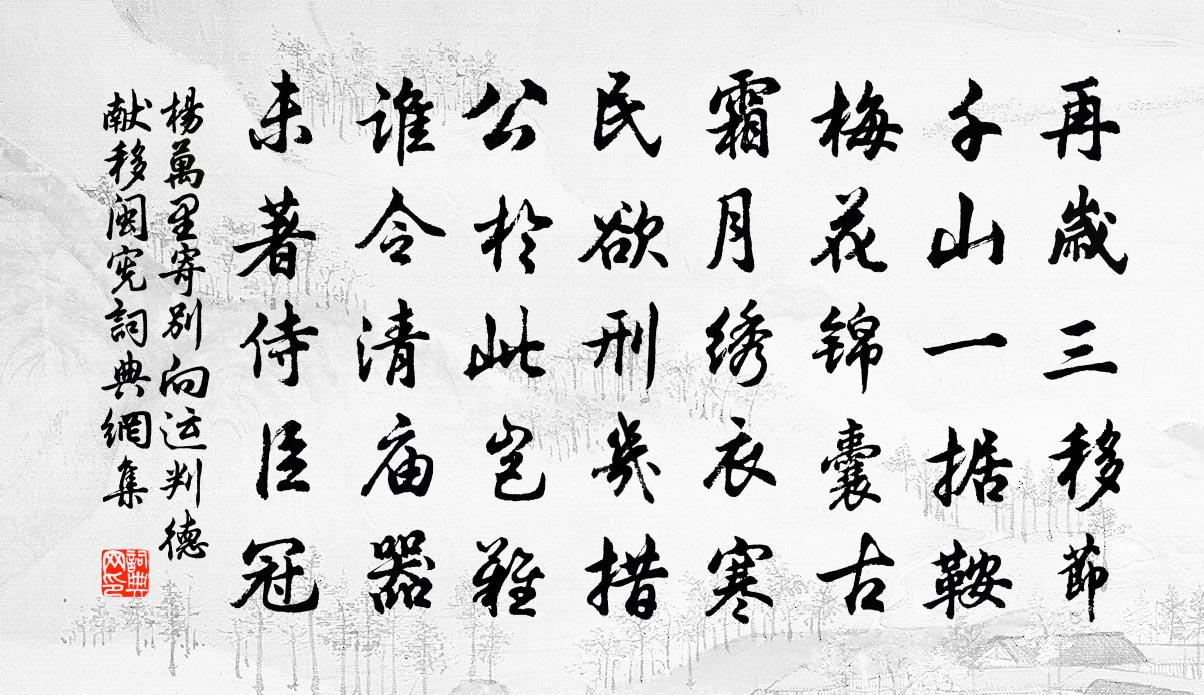 再歲三移節
千山一据鞍
梅花锦囊古
霜月绣衣寒
民欲刑幾措
公於此豈難
谁令清庙器
未著侍臣冠
楊萬里寄别向运判德
献移闽宪詞典網集
詞典网印